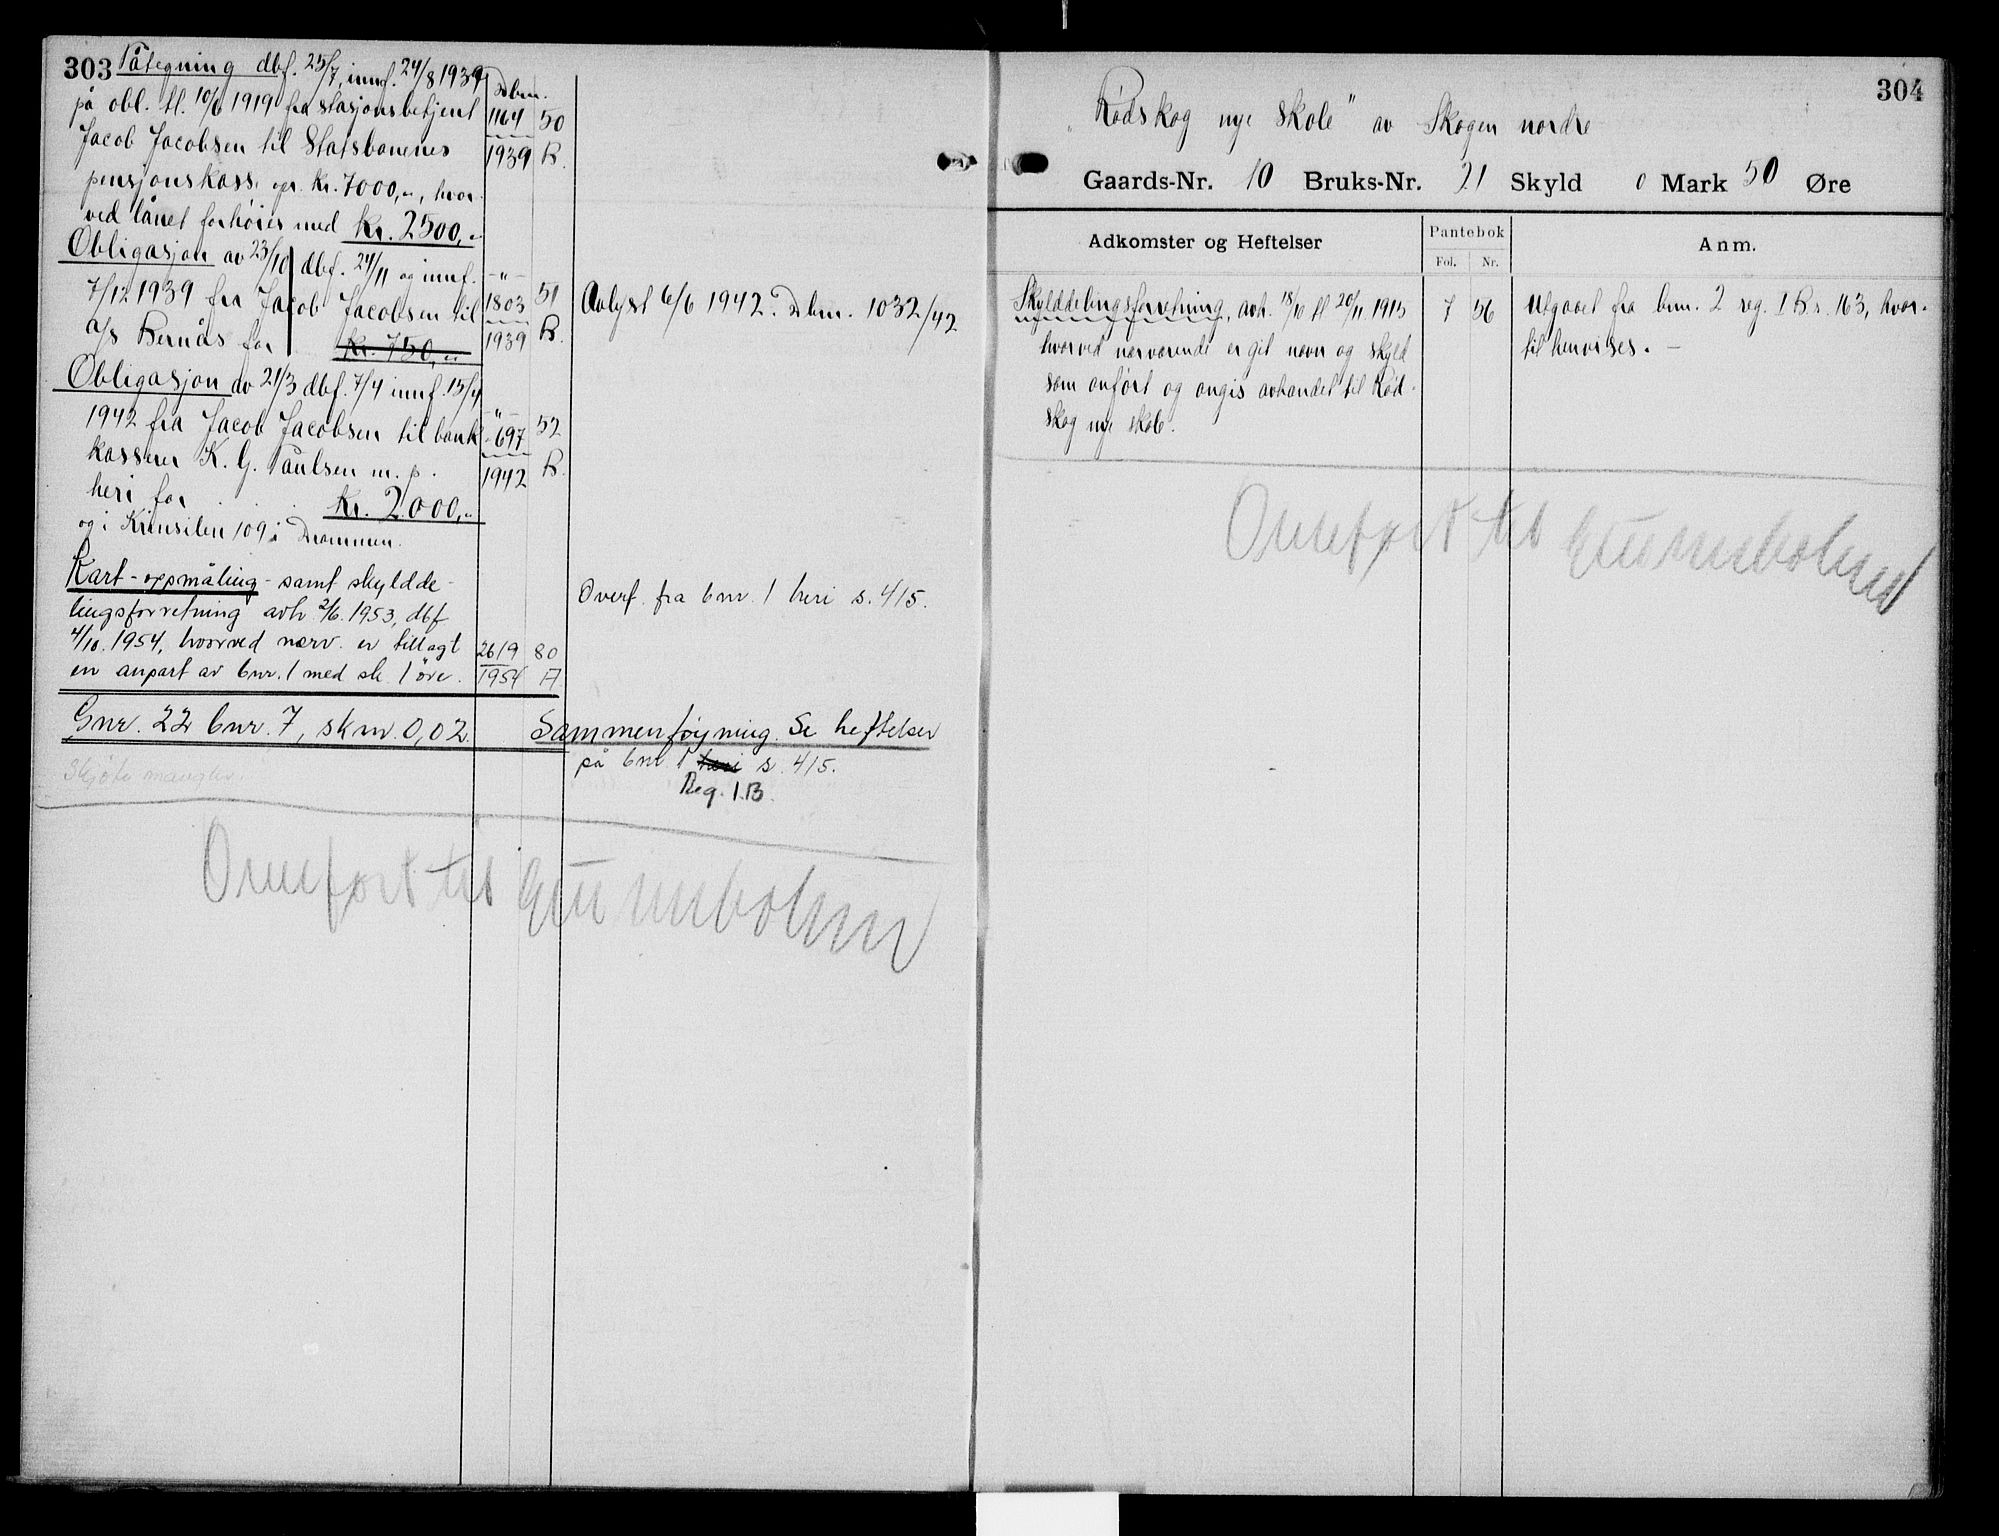 303 Påtegning dbf. 25/7, innf. 24/8 1939
på obl. tl. 10/6 1919 fra stasjonsbetjent
Jacob Jacobsen til Statsbanenes
pensjonskass. opr. Kr. 7000,-, hvor-
ved lånet forhøies med Kr. 2500,-
Dbnr.
1164 50
1939 B.
Obligasjon av 23/10 dbf. 24/11 og innf.
7/12 1939 fra Jacob Jacobsen til
a/s Bernås for Kr. 750,-
-"-
1803 51
1939 B.
Avlyst 6/6 1942. Dbnr. 1032/42
Obligasjon av 21/3 dbf. 7/4 innf. 15/4
1942 fra Jacob Jacobsen til bank-
kasserer K. G. Paulsen m. p.
heri for . . . Kr. 2000,-
og i 109 i Drammen.
-"-
697 52
1942 B.
Kart-oppmåling - samt skyldde-
lingsforretning avh. 2/6. 1953, dbf
4/10. 1954, hvorved nærv. er tillagt
en anpart av bnr. 1 med sk. 1 øre.
2619 80
1954 A
Overf. fra bnr. 1 heri s. 415.
Gnr. 22 bnr. 7, skm. 0,02.
Sammenføyning. Se heftelser
på bnr. 1 heri s. 415.
Reg. I.B.
Skjøte mangler.
Overført til
304
"Rødskog nye skole" av Skogen nordre
Gaards-Nr. 10 Bruks-Nr. 21 Skyld 0 Mark 50 Øre
Adkomster og Heftelser
Pantebok
Fol. Nr.
Anm.
Skylddelingsforretning, avh. 18/10 tl 20/11 1915
hvorved nærværende er git navn og skyld
som anført og angis avhandet til Rød-
skog nye skole.
7 56
Utgaaet fra bnr. 2 reg. I B s. 163, hvor-
til henvises. -
Overført til